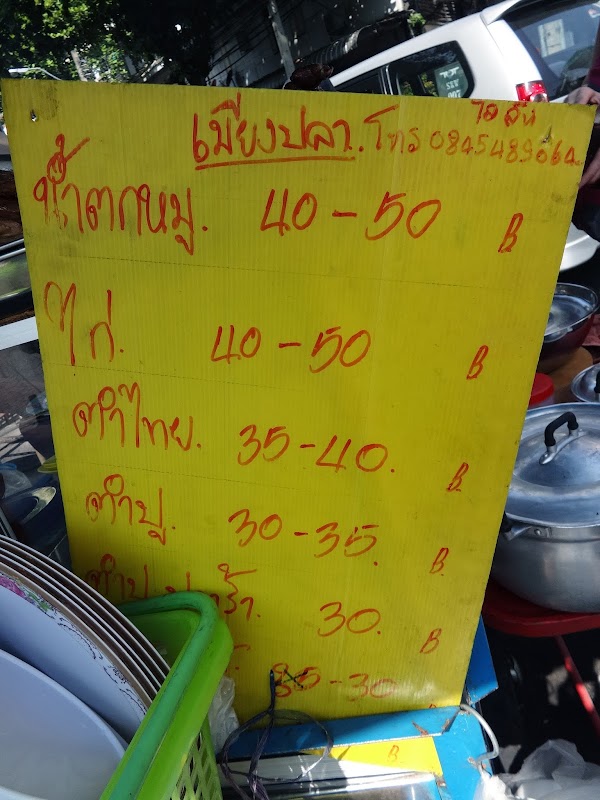 เมี่ยงปลา. โทร 0845489064
น้ำตกหมู. 40-50 B
ไก่. 40-50 B
ตำไทย. 35-40. B
ตำปู. 30-35. B.
ตำปู 30. B
35-30
B